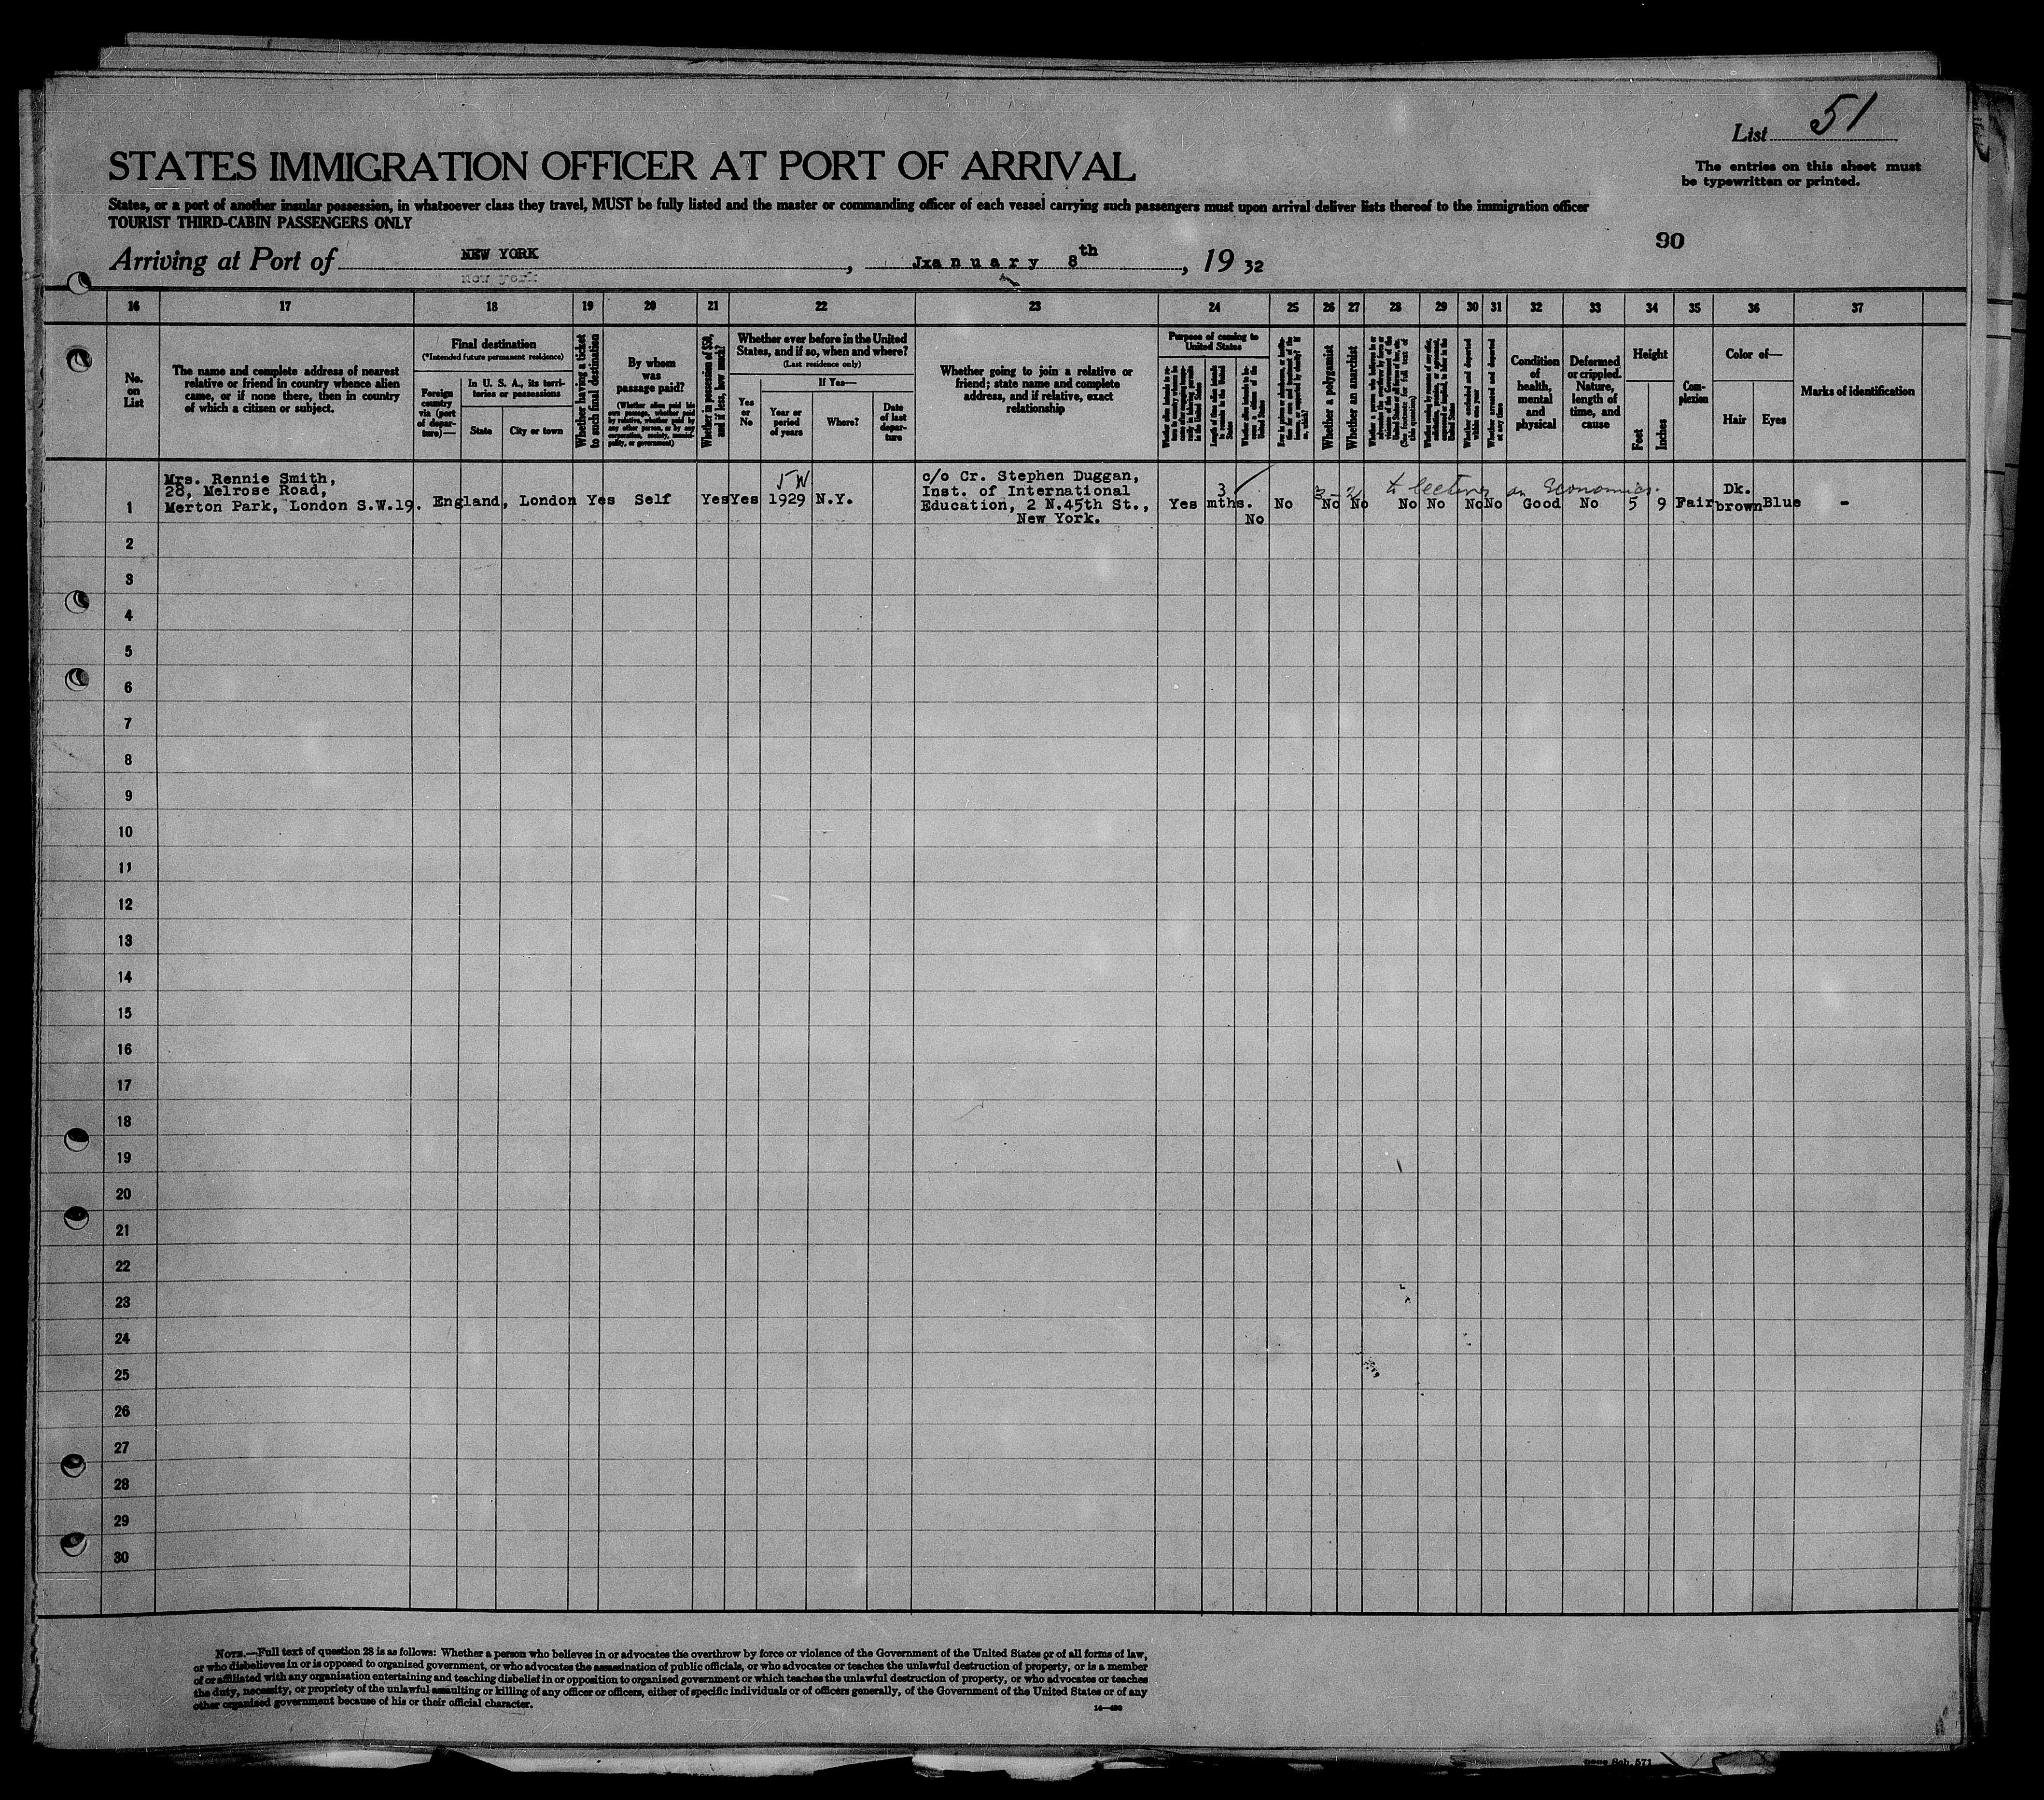 List 51
STATES IMMIGRATION OFFICER AT PORT OF ARRIVAL
The entries on this sheet must
be typewritten or printed.
States, or a port of another insular possession, in whatsoever class they travel, MUST be fully listed and the master or commanding officer of each vessel carrying such passengers must upon arrival deliver lists thereof to the immigration officer
TOURIST THIRD-CABIN PASSENGERS ONLY
90
Arriving at Port of NEW YORK, January 8th, 1932
New York
16 17 18 19 20 21 22 23 24 25 26 27 28 29 30 31 32 33 34 35 36 37
No.
on
List
The name and complete address of nearest
relative or friend in country whence alien
came, or if none there, then in country
of which a citizen or subject.
Final destination
(*Intended future permanent residence)
Foreign
country
via (port
of depar-
ture)—
In U. S. A., its terri-
tories or possessions
State
City or town
Whether having a ticket
to such final destination
By whom
was
passage paid?
(Whether alien paid his
own passage, whether paid
by relative, whether paid by
any other person, or by any
corporation, society, munici-
pality, or government)
Whether in possession of $50,
and if less, how much?
Whether ever before in the United
States, and if so, when and where?
(Last residence only)
Yes
or
No
If Yes—
Year or
period
of years
Where?
Date
of last
depar-
ture
Whether going to join a relative or
friend; state name and complete
address, and if relative, exact
relationship
Purpose of coming to
United States
Length of time alien intends
to remain in the United
States
Whether alien intends to be-
come a citizen of the
United States
Whether a polygamist
Whether an anarchist
Whether excluded and deported
within one year
Whether arrested and deported
at any time
Condition
of
health,
mental
and
physical
Deformed
or crippled.
Nature,
length of
time, and
cause
Height
Feet
Inches
Com-
plexion
Color of—
Hair
Eyes
Marks of identification
Mrs. Rennie Smith,
28, Melrose Road,
Merton Park, London S.W.19.
1
England, London Yes Self Yes Yes 1929 N.Y.
c/o Cr. Stephen Duggan,
Inst. of International
Education, 2 N.45th St.,
New York.
Yes 3 mths. No No No No No No No No Good No 5 9 Fair Dk. brown Blue -
3-2 to lecture on Economics.
2
3
4
5
6
7
8
9
10
11
12
13
14
15
16
17
18
19
20
21
22
23
24
25
26
27
28
29
30
NOTE.—Full text of question 28 is as follows: Whether a person who believes in or advocates the overthrow by force or violence of the Government of the United States or of all forms of law,
or who disbelieves in or is opposed to organized government, or who advocates the assassination of public officials, or who advocates or teaches the unlawful destruction of property, or is a member
of or affiliated with any organization entertaining and teaching disbelief in or opposition to organized government or which teaches the unlawful destruction of property, or who advocates or teaches
the duty, necessity, or propriety of the unlawful assaulting or killing of any officer or officers, either of specific individuals or of officers generally, of the Government of the United States or of any
other organized government because of his or their official character.